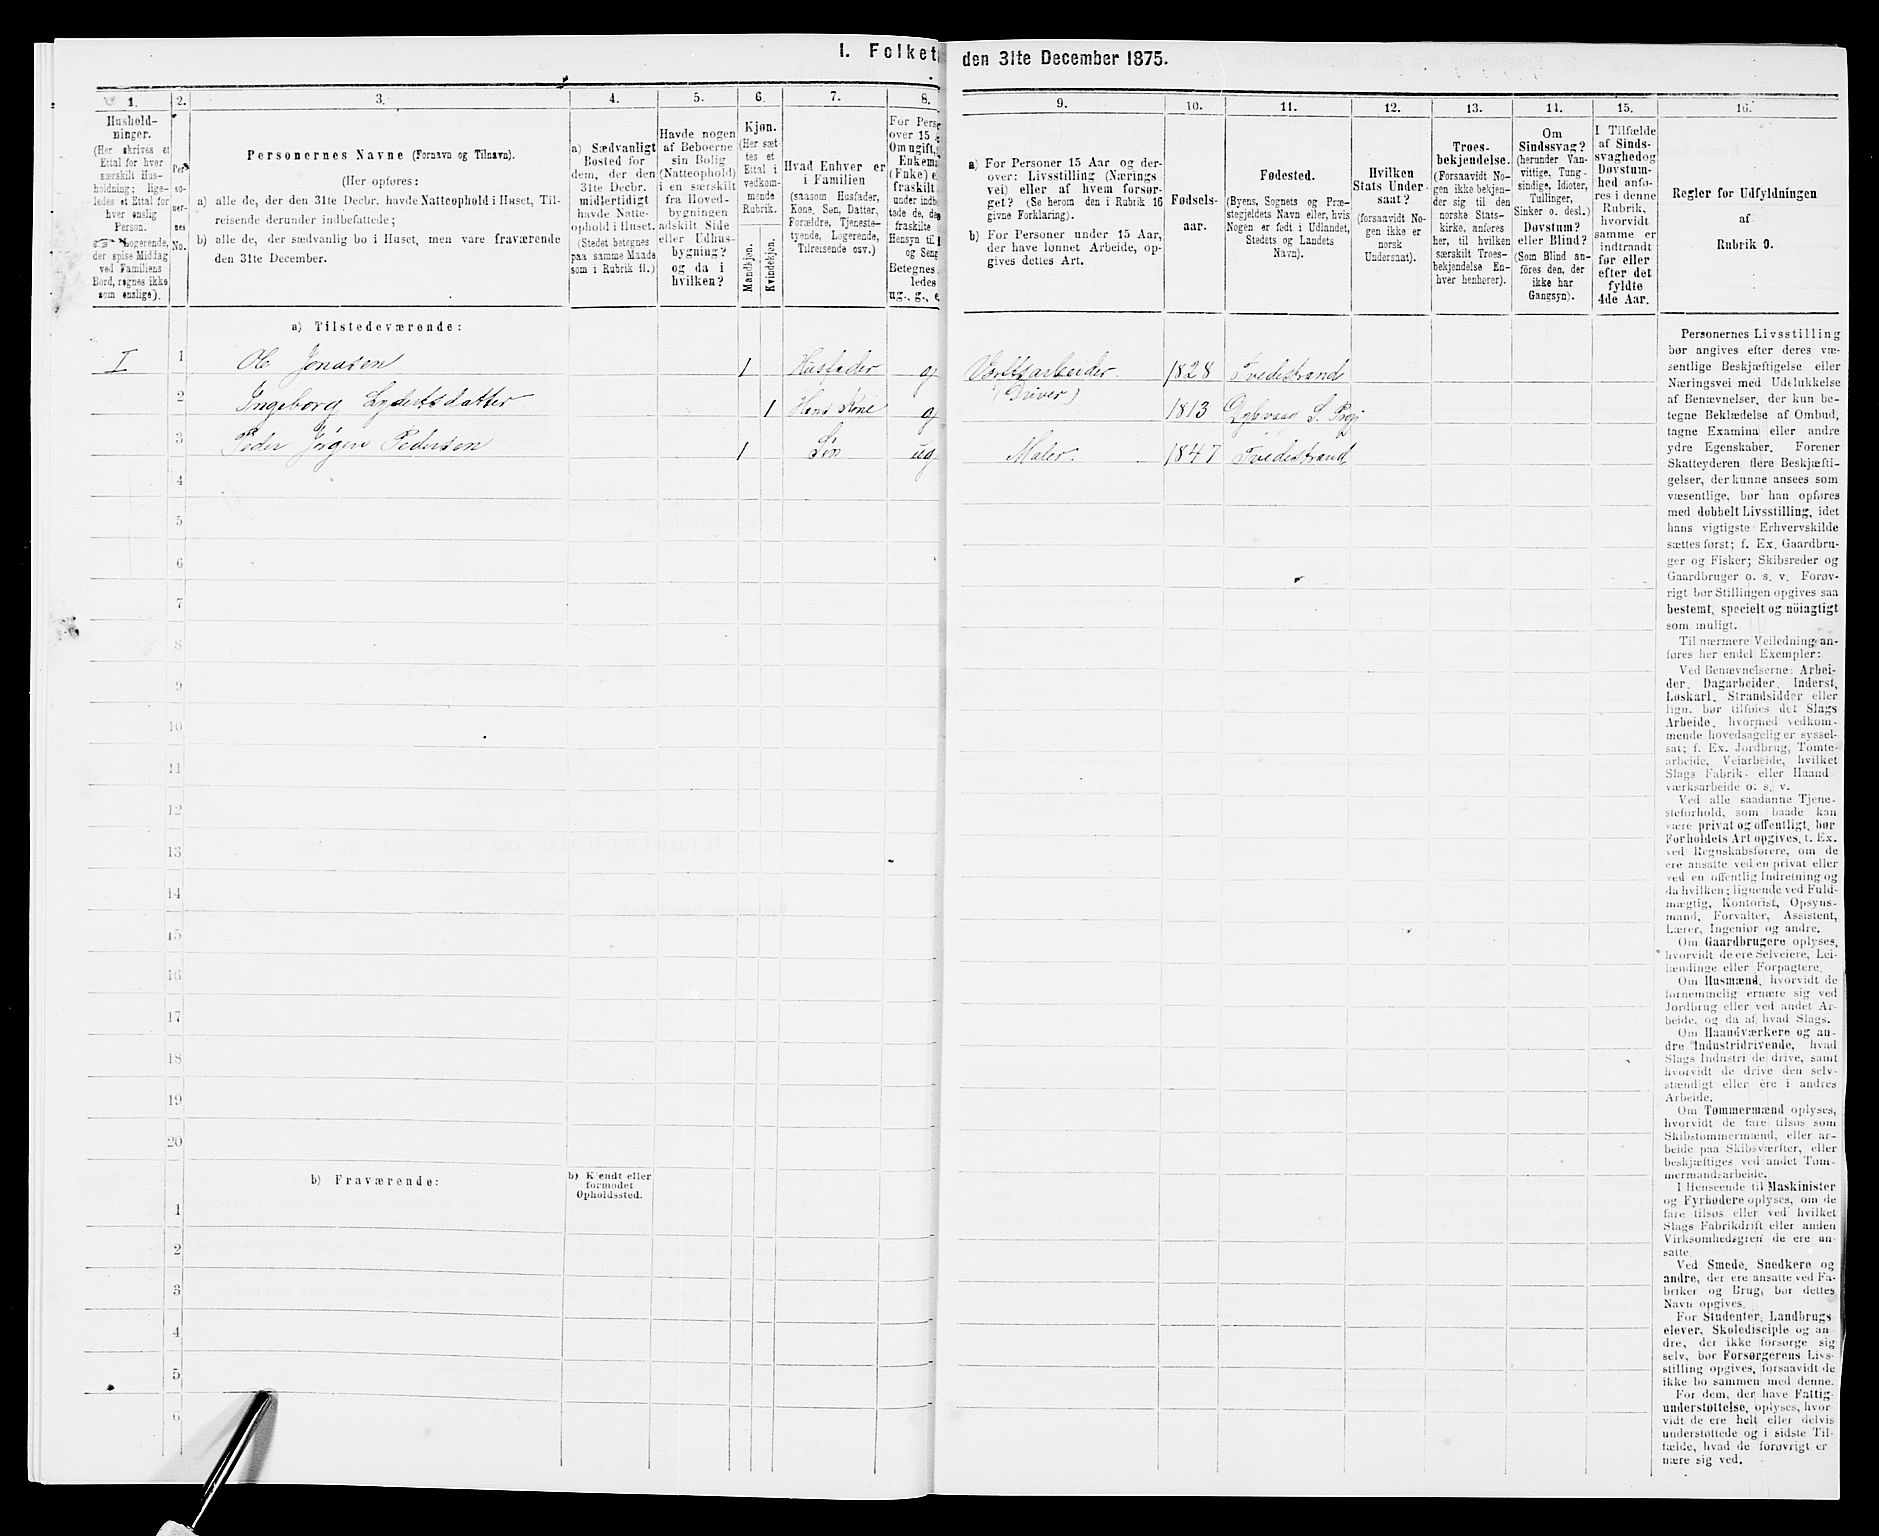 I. Folket
den 31te December 1875.
1.
2.
3.
4.
5.
6.
7.
8.
9.
10.
11.
12.
13.
14.
15.
16.
Hushold-
ninger.
(Her skrives et
Ettal for hver
særskilt Hus-
holdning; lige-
ledes et Ettal for
hver enslig
Person.
Logerende,
der spise Middag
ved Familiens
Bord, regnes ikke
som enslige).
Per-
so-
ner-
nes
No.
Personernes Navne (Fornavn og Tilnavn).
(Her opføres:
a) alle de, der den 31te Decbr. havde Natteophold i Huset, Til-
reisende derunder indbefattede;
b) alle de, der sædvanlig bo i Huset, men vare fraværende
den 31te December.
a) Sædvanligt
Bosted for
dem, der den
31te Decbr.
midlertidigt
havde Natte-
ophold i Huset.
(Stedet betegnes
paa samme Maade
som i Rubrik 11.)
Havde nogen
af Beboerne
sin Bolig
(Natteophold)
i en særskilt
fra Hoved-
bygningen
adskilt Side
eller Udhus-
bygning?
og da i
hvilken?
Kjøn.
(Her sæt
tes et
Ettal i
vedkom-
mende
Rubrik.
Mandkjøn.
Kvindekjøn.
Hvad Enhver er
i Familien
(saasom Husfader,
Kone, Søn, Datter,
Forældre, Tjeneste-
tyende, Logerende,
Tilreisende osv.)
For Pers
over 15
Om ugift,
Enkema
(Enke) e
fraskilt
under indb
tede de, de
fraskilte
Hensyn til
og Seng
Betegnes
ledes
ug., g., e
a) For Personer 15 Aar og der-
over: Livsstilling (Nærings
vei) eller af hvem forsør-
get? (Se herom den i Rubrik 16
givne Forklaring).
b) For Personer under 15 Aar,
der have lønnet Arbeide, op-
gives dettes Art.
Fødsels-
aar.
Fødested.
(Byens, Sognets og Præ-
stegjeldets Navn eller, hvis
Nogen er født i Udlandet,
Stedets og Landets
Navn).
Hvilken
Stats Under-
saat?
(forsaavidt No-
gen ikke er
norsk
Undersaat).
Troes-
bekjendelse.
(Forsaavidt No-
gen ikke bekjen-
der sig til den
norske Stats-
kirke, anføres
her, til hvilken
særskilt Troes-
bekjendelse En-
hver henhører).
Om
Sindssvag?
(herunder Van-
vittige, Tung-
sindige, Idioter,
Tullinger,
Sinker o. desl.)
Døvstum?
eller Blind?
(Som Blind an-
føres den, der
ikke har
Gangsyn).
I Tilfælde
af Sinds-
svaghed og
Døvstum-
hed anfø-
res i denne
Rubrik,
hvorvidt
samme er
indtraadt
før eller
efter det
fyldte
4de Aar.
Regler for Udfyldningen
af
Rubrik 9.
a) Tilstedeværende:
I 1 Ole Jonasen 1 Husfader g Værftsarbeider 1828 Tvedestrand
(Driver)
2 Ingeborg Lydertsdatter 1 Hans Kone g 1813 Dybvaag S. Præj
3 Peder Jörgen Pedersen 1 Søn ug Maler. 1847 Tvedestrand
4
5
6
7
8
9
10
11
12
13
14
15
16
17
18
19
20
b) Fraværende:
b) Kjendt eller
formodet
Opholdssted.
1
2
3
4
5
6
Personernes Livsstilling
bør angives efter deres væ-
sentlige Beskjæftigelse eller
Næringsvei med Udelukkelse
af Benævnelser, der kun be-
tegne Beklædelse af Ombud,
tagne Examina eller andre
ydre Egenskaber. Forener
Skatteyderen flere Beskjæfti-
gelser, der kunne ansees som
væsentlige, bør han opføres
med dobbelt Livsstilling, idet
hans vigtigste Erhvervskilde
sættes først; f. Ex. Gaardbru-
ger og Fisker; Skibsreder og
Gaardbruger o. s. v. Forøv-
rigt bør Stillingen opgives saa
bestemt, specielt og nöiagtigt
som muligt.
Til nærmere Veiledning an-
føres her endel Exempler:
Ved Benævnelserne: Arbei-
der, Dagarbeider, Inderst,
Løskarl, Strandsidder eller
lign. bør tilføies det Slags
Arbeide, hvormed vedkom-
mende hovedsagelig er syssel-
sat; f. Ex. Jordbrug, Tomte-
arbeide, Veiarbeide, hvilket
Slags Fabrik- eller Haand
værksarbeide o. s. v.
Ved alle saadanne Tjene-
steforhold, som baade kan
være privat og offentligt, bør
Forholdets Art opgives, t. Ex.
ved Regnskabsførere, om de
ere ansatte ved en privat eller
ved en offentlig Indretning og
da hvilken; lignende ved Fuld-
mægtig, Kontorist, Opsyns-
mand, Forvalter, Assistent,
Lærer, Ingeniør og andre.
Om Gaardbrugere oplyses,
hvorvidt de ere Selveiere, Lei-
lændinge eller Forpagtere.
Om Husmænd, hvorvidt de
fornemmelig ernære sig ved
Jordbrug eller ved andet Ar-
beide, og da af hvad Slags.
Om Haandværkere og an-
dre Industridrivende, hvad
Slags Industri de drive, samt
hvorvidt de drive den selv-
stændigt eller ere i andres
Arbeide.
Om Tømmermænd oplyses,
hvorvidt de fare tilsøs som
Skibstømmermænd, eller ar-
beide paa Skibsværfter, eller
beskjæftiges ved andet Tøm-
mermandsarbeide.
I Henseende til Maskinister
og Fyrbødere oplyses, om de
fare tilsøs eller ved hvilket
Slags Fabrikdrift eller anden
Virksomhedsgren de ere an-
satte.
Ved Smede, Snedkere og
andre, der ere ansatte ved Fa-
briker og Brug, bør dettes
Navn opgives.
For Studenter, Landbrugs
elever, Skoledisciple og an-
dre, der ikke forsørge sig
selv, bør Forsørgerens Livs-
stilling opgives, forsaavidt de
ikke bo sammen med denne.
For dem, der have Fattig-
understøttelse, oplyses, hvor-
vidt de ere helt eller delvis
understøttede og i sidste Til-
fælde, hvad de forøvrigt er
nære sig ved.